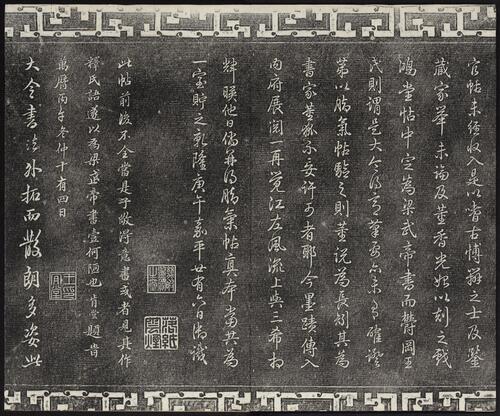 官帖未經收入是以嗜古博雅之士及鑒
藏家舉未論及董香光始以刻之戲
鴻堂帖中定為梁武帝書而鬱岡王
氏則謂是大令得意筆要亦未有確證
第以腦氣帖驗之則董說為長矧其為
書家董狐不妄許可者耶今墨蹟傳入
內府展閱一再覺江左風流上與三希相
輝暎他日儻并得腦氣帖真本當共為
一室貯之乾隆庚午嘉平廿有六日御識
此帖前後不全當是子敬得意書或者見其作
釋氏語遂以為梁武帝書壹何陋也肯堂題旹
萬曆丙午冬仲十有四日
大令書法外拓而散朗多姿此